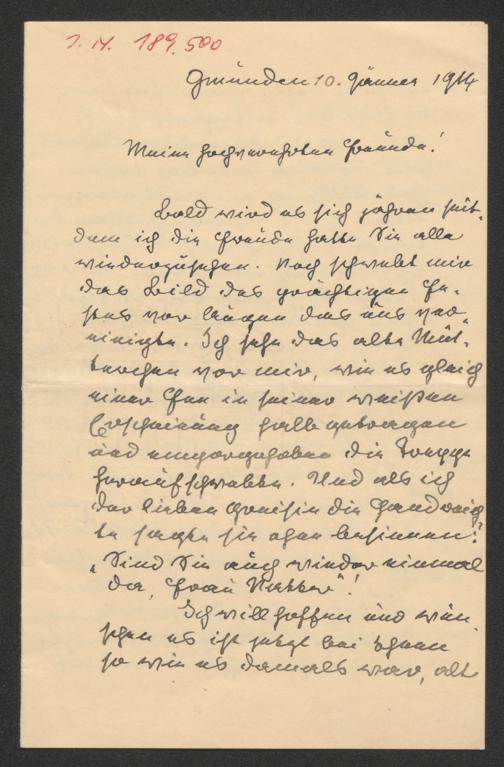 I. N. 189.500
Gmünden 10. Jänner 1914
Meine hochverehrten Freunde!
Bald wird es sich jähren seit-
dem ich die Freude hatte Sie alle
wiederzusehen. Noch schwebt mir
das Bild des prächtigen Fe-
stes vor Augen das uns ver-
einigte. Ich sehe das alte Müt-
terchen vor mir, wie es gleich
einer Fee in seiner weißen
Erscheinung halb getragen
und emporgehoben die Treppe
heraufschwebte. Und als ich
der lieben Greisin die Hand reich-
te sagte sie ohne besinnen:
„Sind Sie auch wieder einmal
da, Frau
Ich will hoffen und wün-
schen es ist jetzt bei Ihnen
so wie es damals war, alt